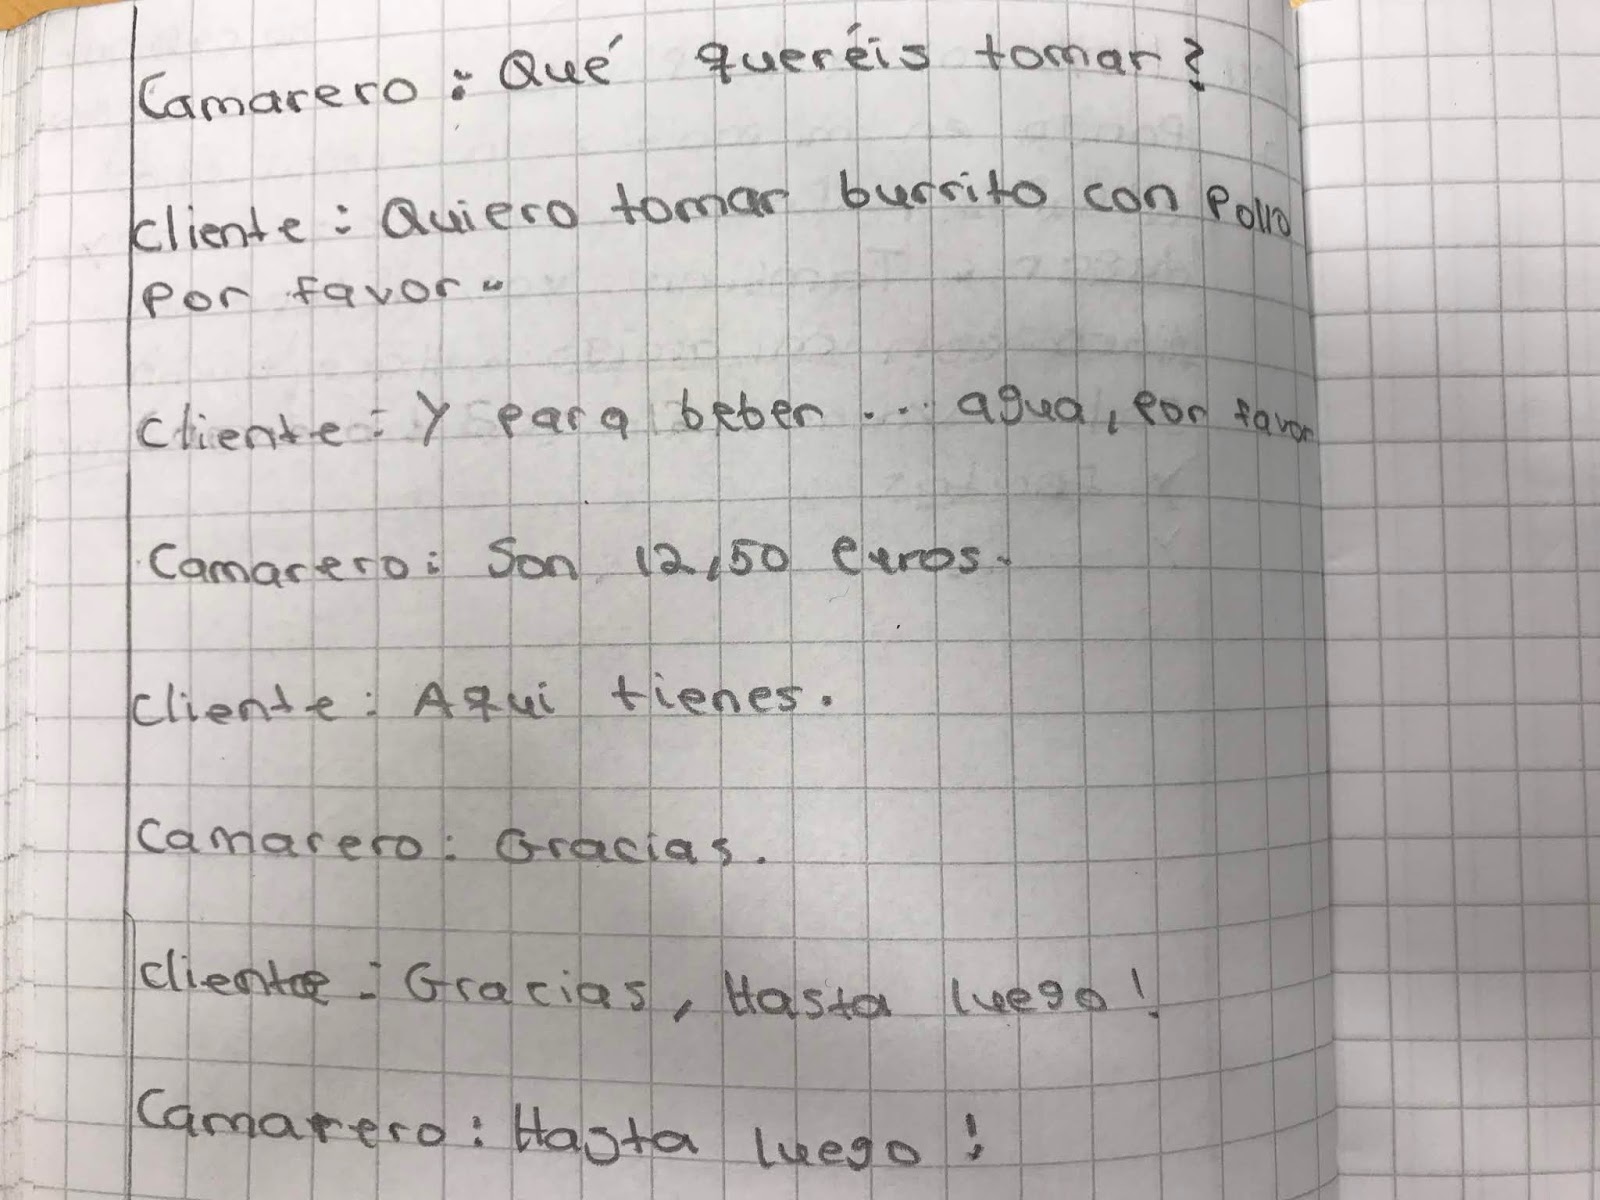 Camarero: Qué queréis tomar?
cliente: Quiero tomar burrito con Pollo
Por favor.
cliente: Y para beber ... agua, por favor
Camarero: Son 12,50 euros.
cliente: Aqui tienes.
Camarero: Gracias.
cliente: Gracias, Hasta luego!
Camarero: Hasta luego!